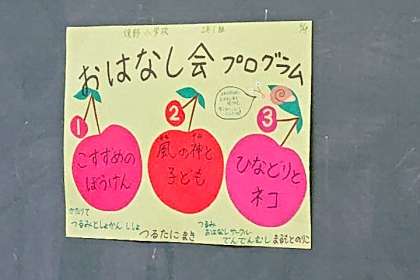 小学校 2年1組
おはなし会 プログラム
1
こすずめの
ぼうけん
2
風の神と
子ども
3
ひなどりと
ネコ
かたりて
つるみとしょかん ししょ
つるたに まき
つるみ
おはなしサークル
でんでんむし まるもとのりこ